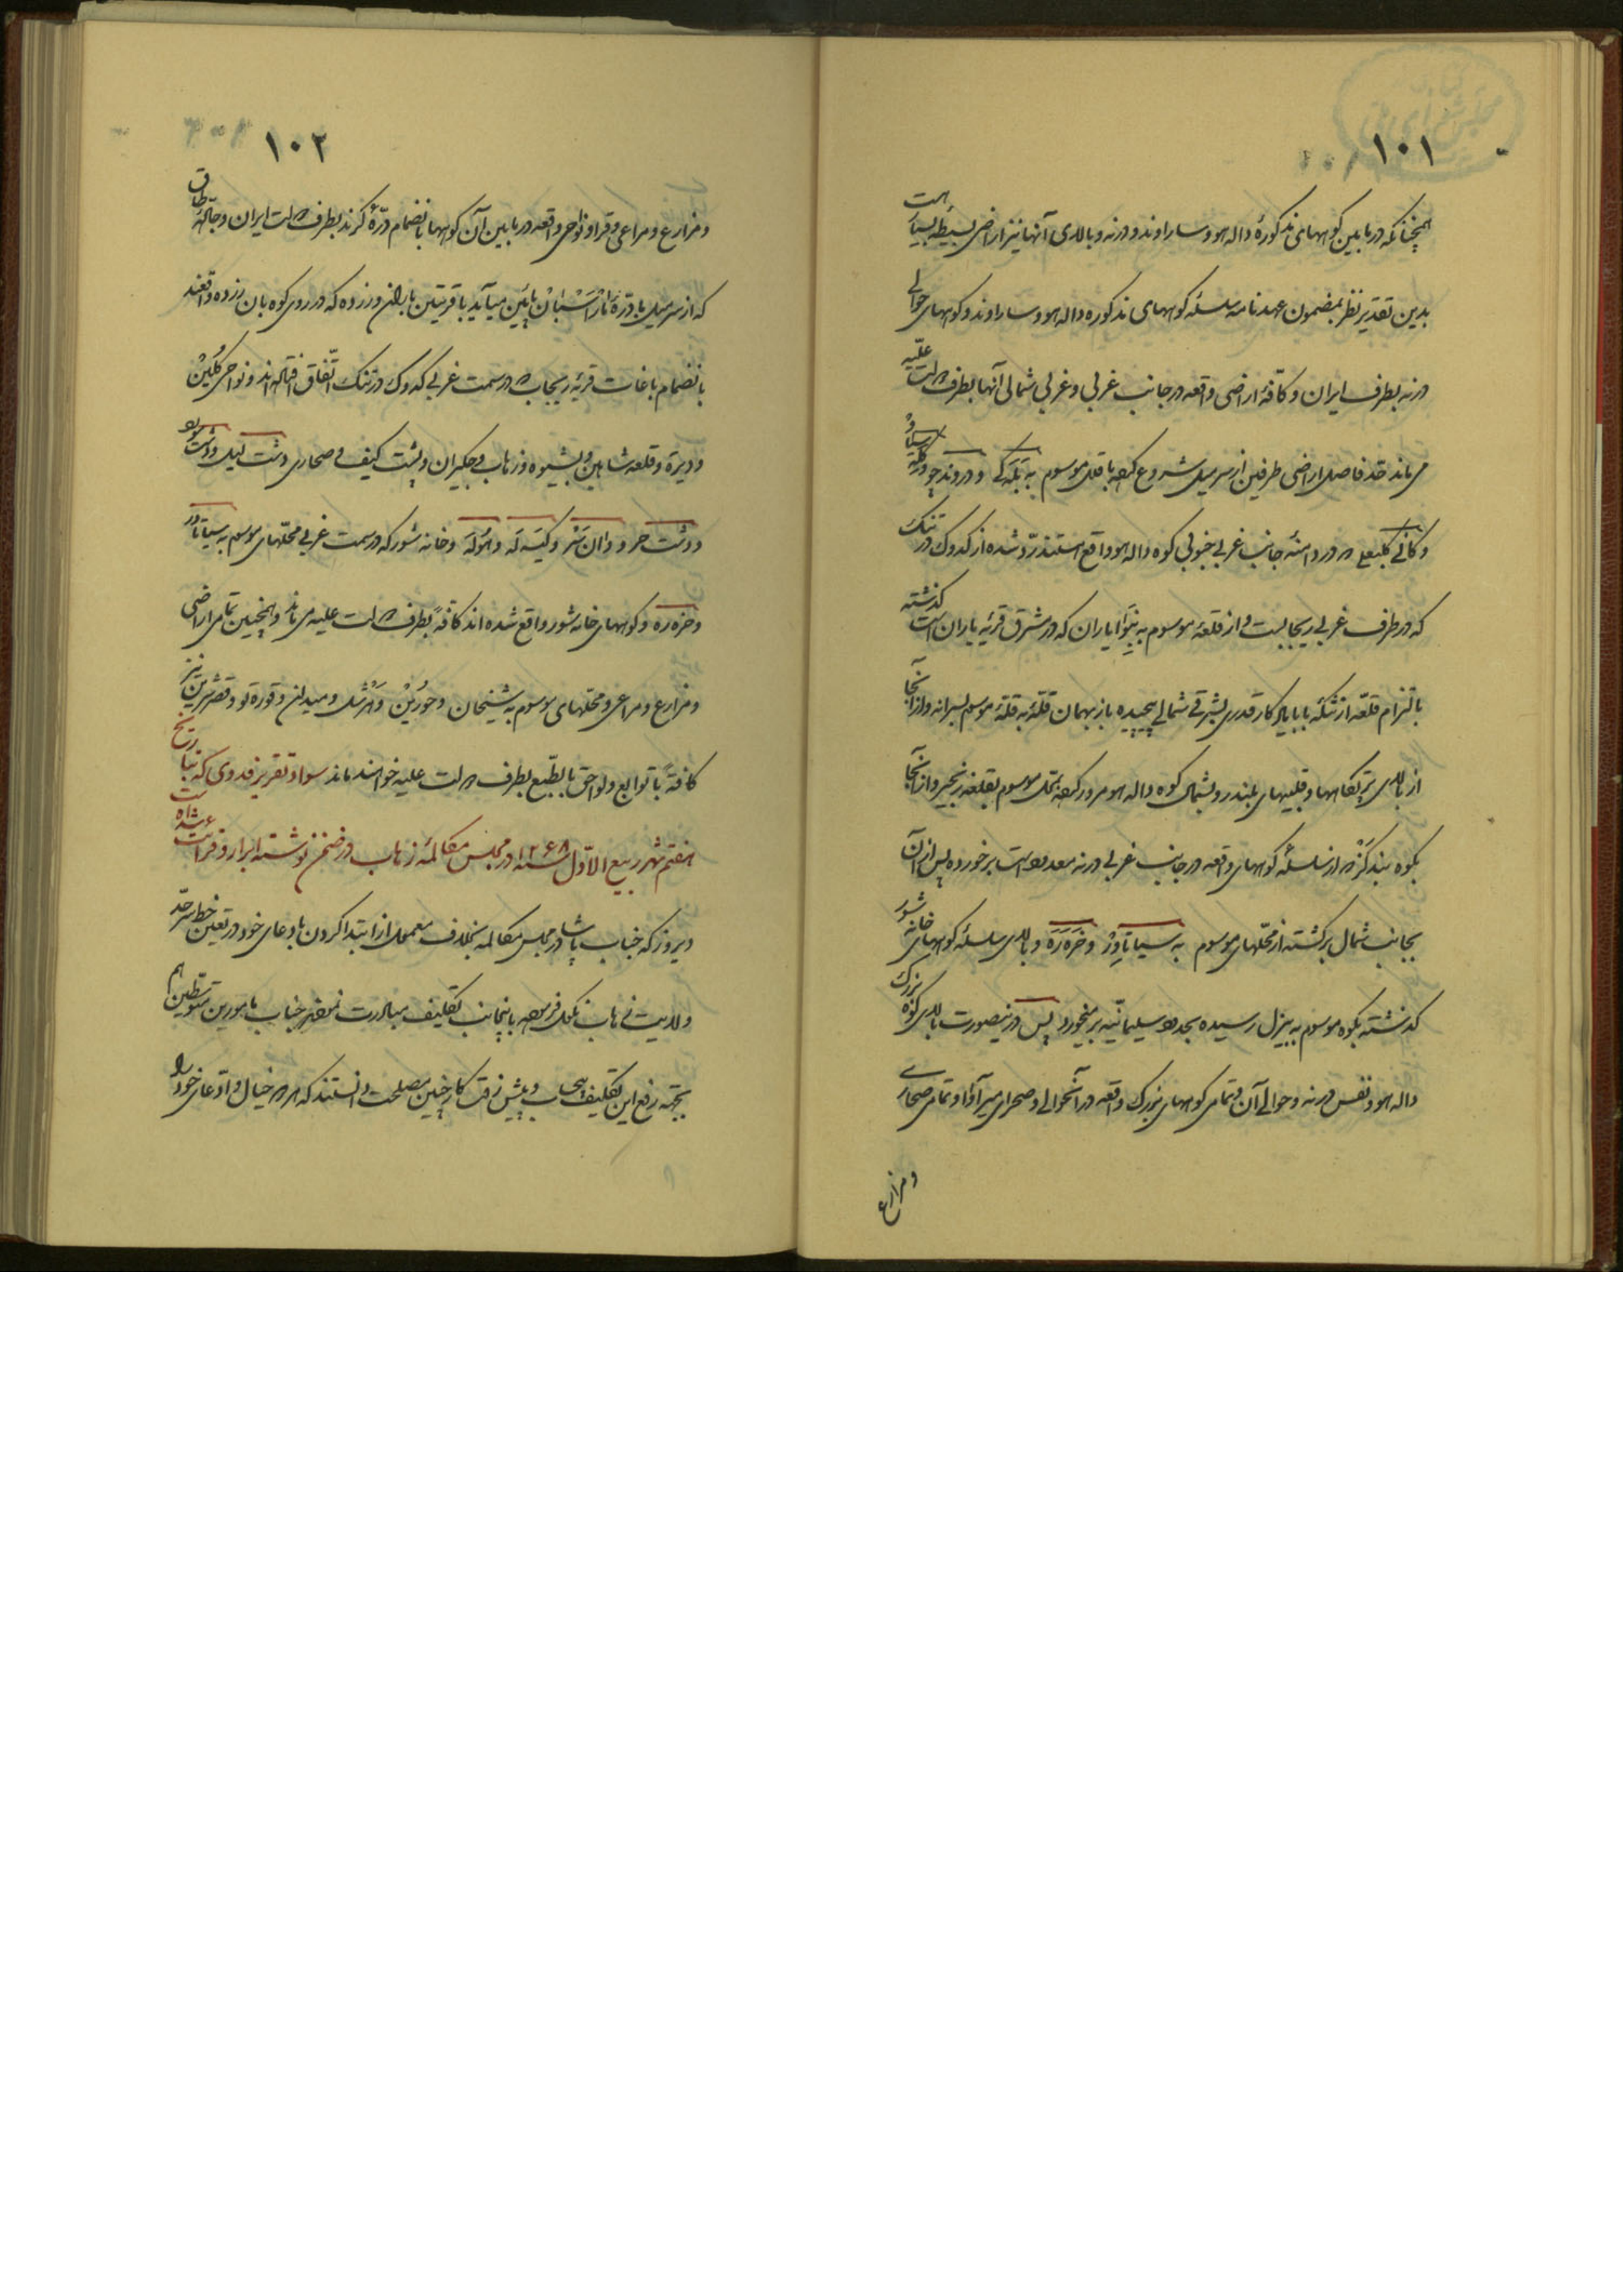 ۱۰۱
همچنانکه در مابین کوههای مذکورهٔ داله هو و ساراوند و درنه و بالای آنها نیز اراضی بسیطه بسیار است
بدین تقدیر نظر بمضمون عهدنامه سلسله کوههای مذکوره داله هو و ساراوند و کوههای حوالی
درنه بطرف ایران و کافّهٔ اراضی واقعه در جانب غربی و غربی شمالی آنها بطرف دولت علیّه
می‌ماند حد فاصل اراضی طرفین از سرمیل شروع کرده با قلل موسوم به بَلَه‌کی و دروند جو و کله سیاو
و کانی کلبعلی که در دامنهٔ جانب غربی جنوبی کوه داله هو واقع استند رد شده از کدوک در تنک
که در طرف غربی ریجابست و از قلعهٔ موسوم به ایاران که در مشرق قریهٔ یاران است گذشته
بالتزام قلّه از تنکهٔ بابا یادکار قدری بشرقی شمالی پیچیده باز بهمان قلّه به قلّه موسوم بسرانه و از آنجا
از بالای پرتگاهها و قلیهای بلند رو بشمال کوه داله هو مرور کرده بمحل موسوم بقلعه زنجیر و از آنجا
بکوه بندگز که از سلسله کوههای واقعه در جانب غربی درنه معدود است برخورده پس از آن
بجانب شمال برگشته از محلّهای موسوم به سیاتاوِز و خَرَه‌رَه و بالای سلسله کوههای خانه شور
گذشته بکوه موسوم به بیزل رسیده بحدود سلیمانیّه برمیخورد پس درینصورت بالای کوه بزرک
داله هو و نفس درنه و حوالی آن و تمامی کوههای بزرک واقعه در آنحوالی و صحرای میرآوا و تمامی صحاری
و مزارع
۱۰۲
و مزارع و مراعی و قرا و نواحی واقعه در مابین آن کوهها بانضمام درّهٔ کرند بطرف دولت ایران و جالهٔ طاق
که از سرمیل با درّهٔ پایین میآید با قریتین باران و زرده که در روی کوه بان زرده واقعند
بانضمام باغات قریهٔ ریجاب که در سمت غربی کدوک در تنک اتّفاق افتاده‌اند و نواحی کَلین
و دیره و قلعه شاهین و بشیوه و زهاب و جگیران و پشت کیف و صحاری دشت لیل و دشت
و دشت حر و دان شتر و کیسه له و هوله و خانه شور که در سمت غربی محلّهای موسوم به سیاتاوز
و خره ره و کوههای خانه شور واقع شده‌اند کافّةً بطرف دولت علیه می‌ماند و همچنین تمامی اراضی
و مزارع و مراعی و محلّهای موسوم به شیخان و حورین و هرشل و میدان و قوره‌تو و قصرشیرین نیز
کافّةً با توابع و لواحق بالطّبع بطرف دولت علیه خواهند ماند سواد تقریر فدوی که بتاریخ
هفتم شهر ربیع الاوّل سنه ۱۲۶۸ در مجلس مکالمهٔ زهاب در ضمن نوشته ابراز و قرائت شده است
دیروز که جناب پاشا در مجلس مکالمه بخلاف معمول از ابتدا کردن بادعای خود در تعیین خط سرحدّ
ولایت زهاب نکول فرموده باینجانب تکلیف مبادرت نمودند جناب مامورین متوسطین هم
بجهة رفع این تکلیف بیحساب و پیش رفت کار چنین مصلحت دانستند که هر دو خیال و ادّعای خود را